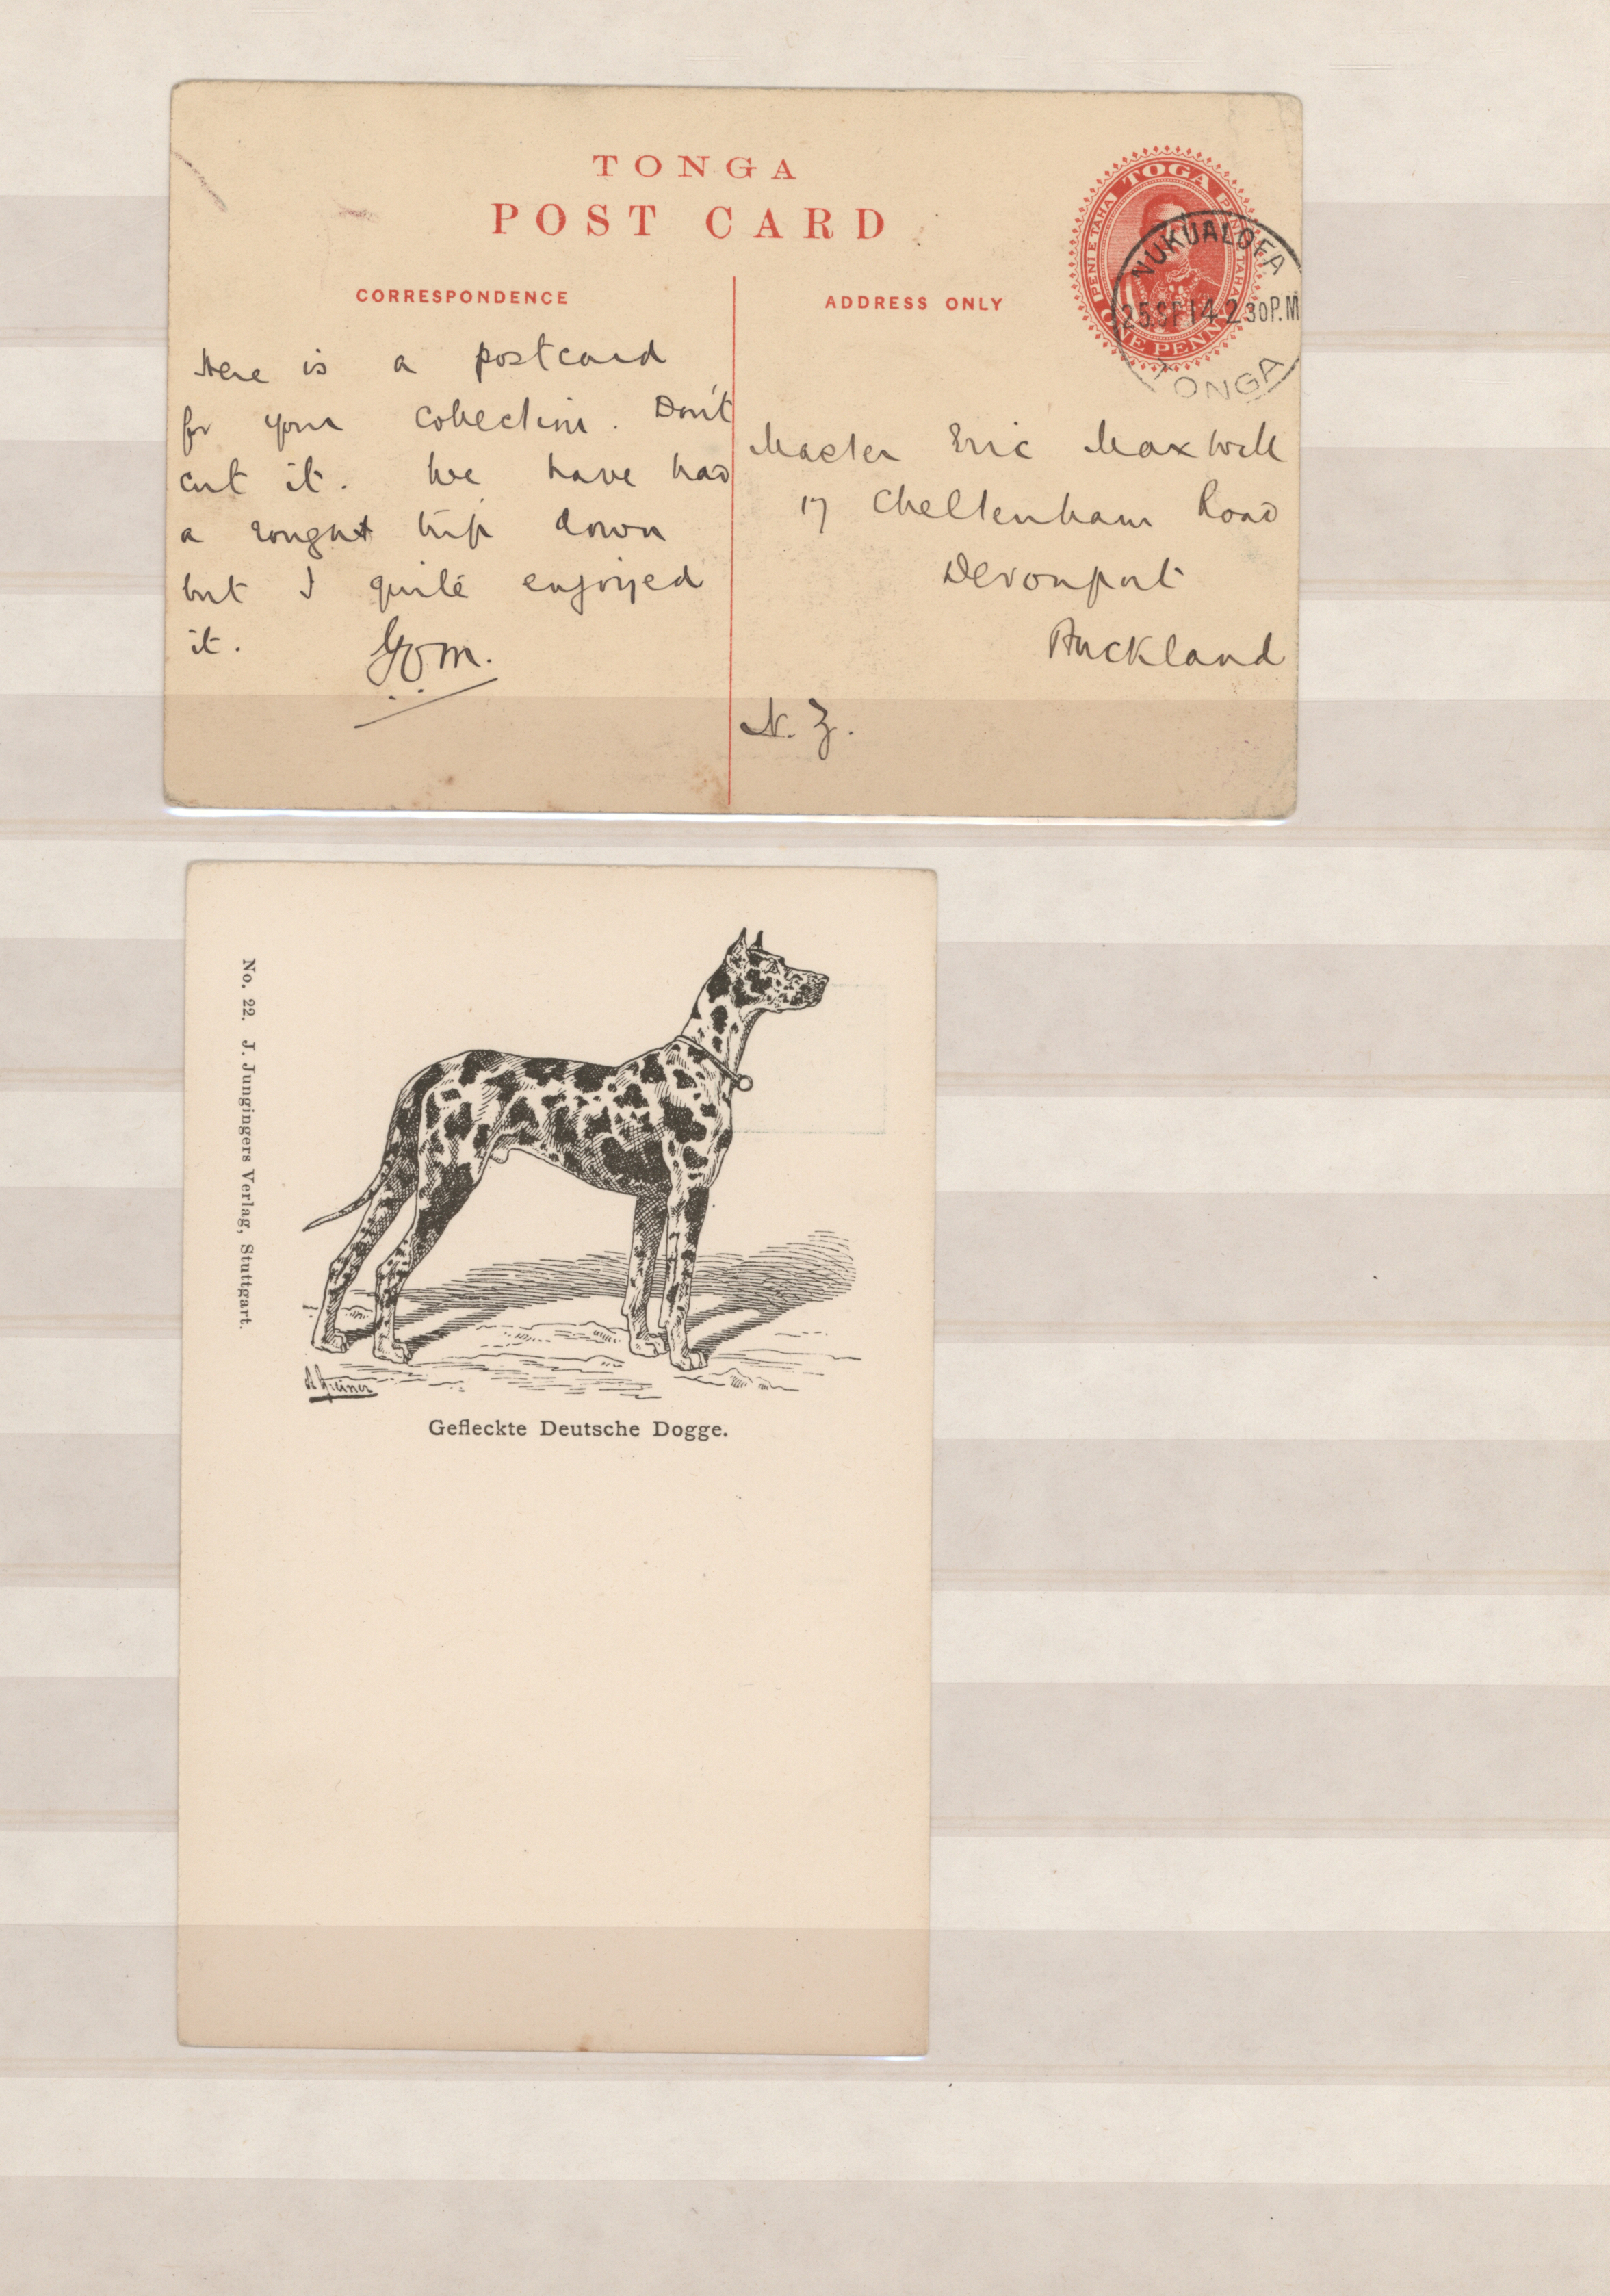 TONGA
POST CARD
CORRESPONDENCE
ADDRESS ONLY
TOGA
PENI E TAHA
PENI E TAHA
ONE PENNY
NUKUALOFA
25 SP 14 2 30 P.M
TONGA
Here is a postcard
for your collection. Don't
cut it. We have had
a rough trip down
but I quite enjoyed
it.
Master Eric Maxwell
17 Cheltenham Road
Devonport
Auckland
N. Z.
No. 22. J. Jungingers Verlag, Stuttgart.
Gefleckte Deutsche Dogge.